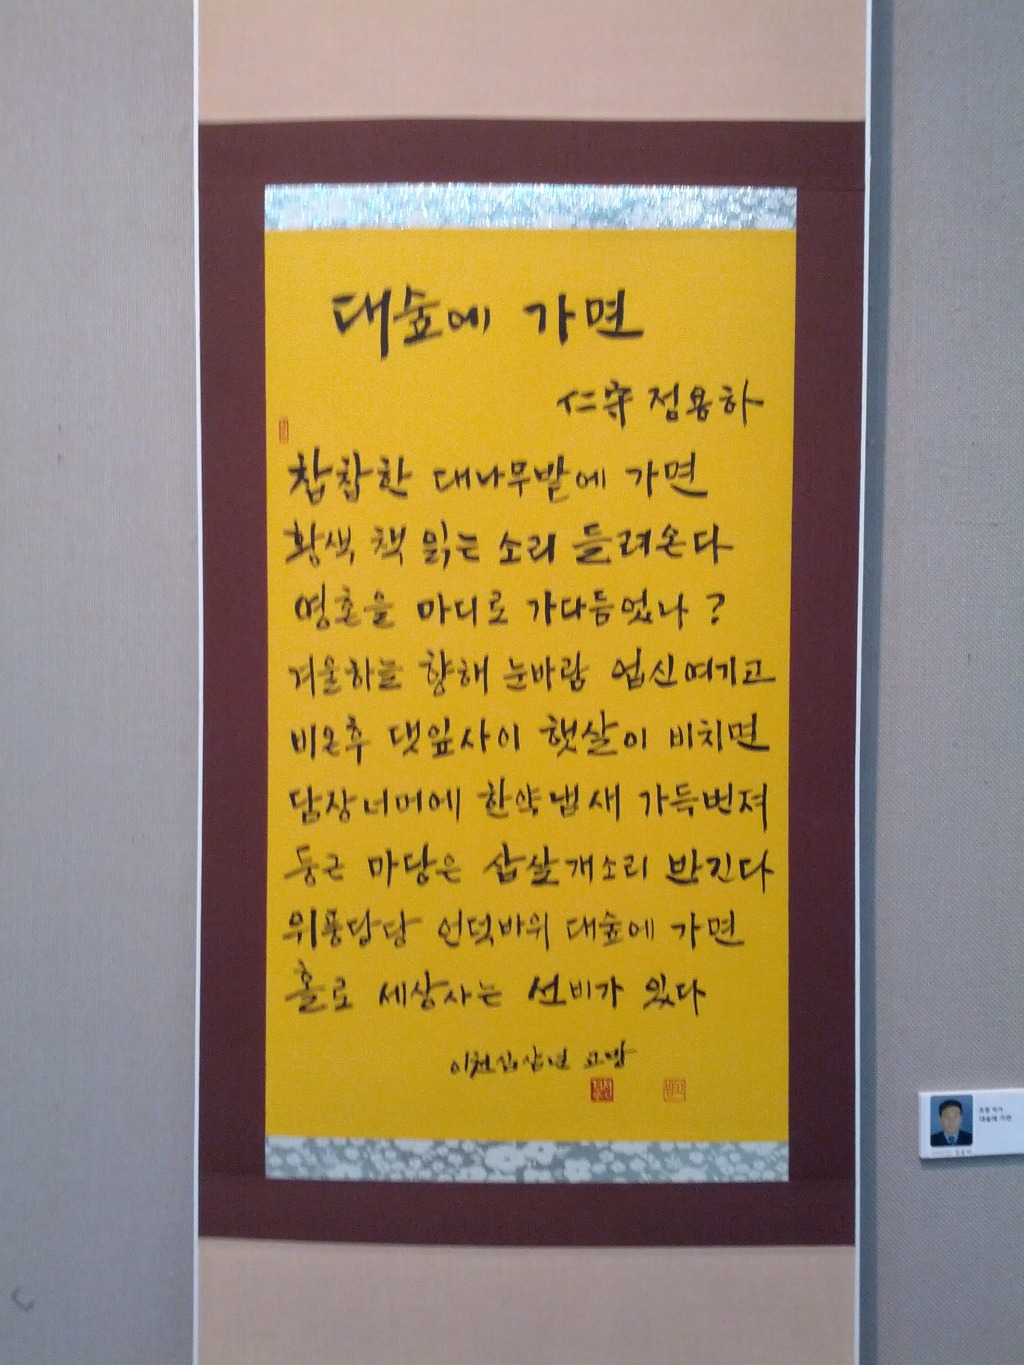 대숲에 가면
仁守 정용하
찹찹한 대나무밭에 가면
황색 책 읽는 소리 들려온다
영혼을 마디로 가다듬었나?
겨울하늘 향해 눈바람 업신여기고
비온후 댓잎사이 햇살이 비치면
담장너머에 한약냄새 가득번져
둥근 마당은 삽살개소리 반긴다
위풍당당 언덕바위 대숲에 가면
홀로 세상사는 선비가 있다
이천십삼년 고방
대숲에 가면